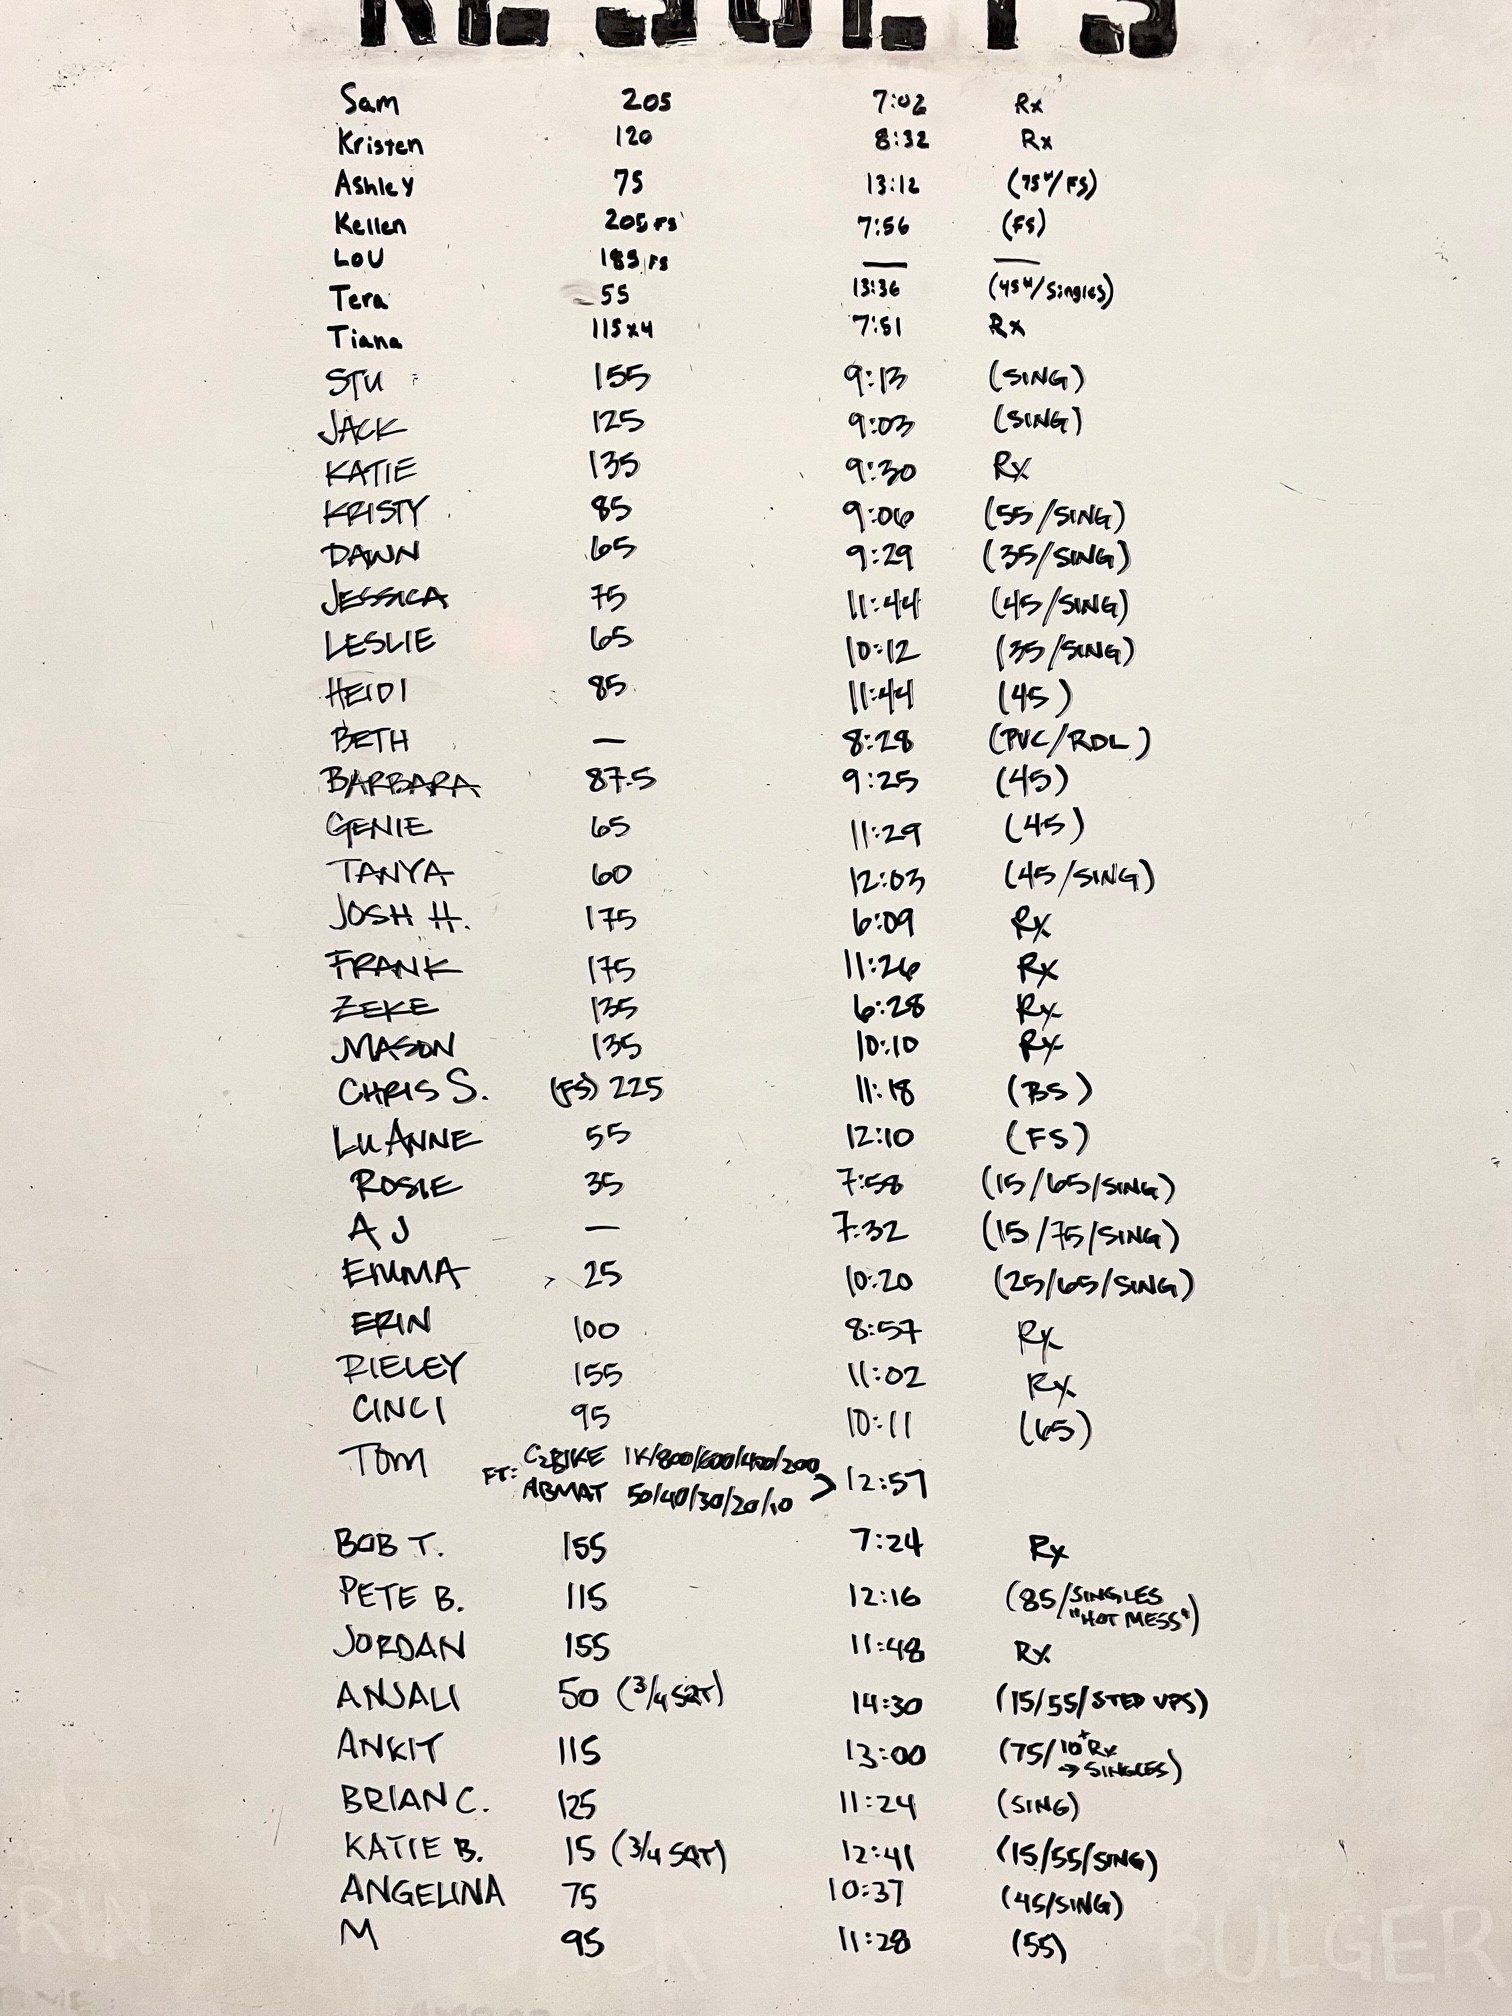 RESULTS
Sam 205 7:02 Rx
Kristen 120 8:32 Rx
Ashley 75 13:12 (75#/FS)
Kellen 205 FS 7:56 (FS)
LOU 185 FS — —
Tera 55 13:36 (45#/Singles)
Tiana 115x4 7:51 Rx
STU 155 9:13 (SING)
JACK 125 9:03 (SING)
KATIE 135 9:30 Rx
KRISTY 85 9:06 (55/SING)
DAWN 65 9:29 (35/SING)
JESSICA 75 11:44 (45/SING)
LESLIE 65 10:12 (35/SING)
HEIDI 85 11:44 (45)
BETH — 8:28 (PVC/RDL)
BARBARA 87.5 9:25 (45)
GENIE 65 11:29 (45)
TANYA 60 12:03 (45/SING)
JOSH H. 175 6:09 Rx
FRANK 175 11:26 Rx
ZEKE 135 6:28 Rx
MASON 135 10:10 Rx
CHRIS S. (FS) 225 11:18 (BS)
LUANNE 55 12:10 (FS)
ROSIE 35 7:58 (15/65/SING)
AJ — 7:32 (15/75/SING)
EMMA 25 10:20 (25/65/SING)
ERIN 100 8:57 Rx
RIELEY 155 11:02 Rx
CINCI 95 10:11 (65)
TOM FT: C2BIKE 1K/800/600/400/200 > 12:57
ABMAT 50/40/30/20/10
BOB T. 155 7:24 Rx
PETE B. 115 12:16 (85/SINGLES
"HOT MESS")
JORDAN 155 11:48 Rx
ANJALI 50 (3/4 SQT) 14:30 (15/55/STEP UPS)
ANKIT 115 13:00 (75/10+Rx
→SINGLES)
BRIAN C. 125 11:24 (SING)
KATIE B. 15 (3/4 SQT) 12:41 (15/55/SING)
ANGELINA 75 10:37 (45/SING)
M 95 11:28 (55)
ERIN JACK BULGER